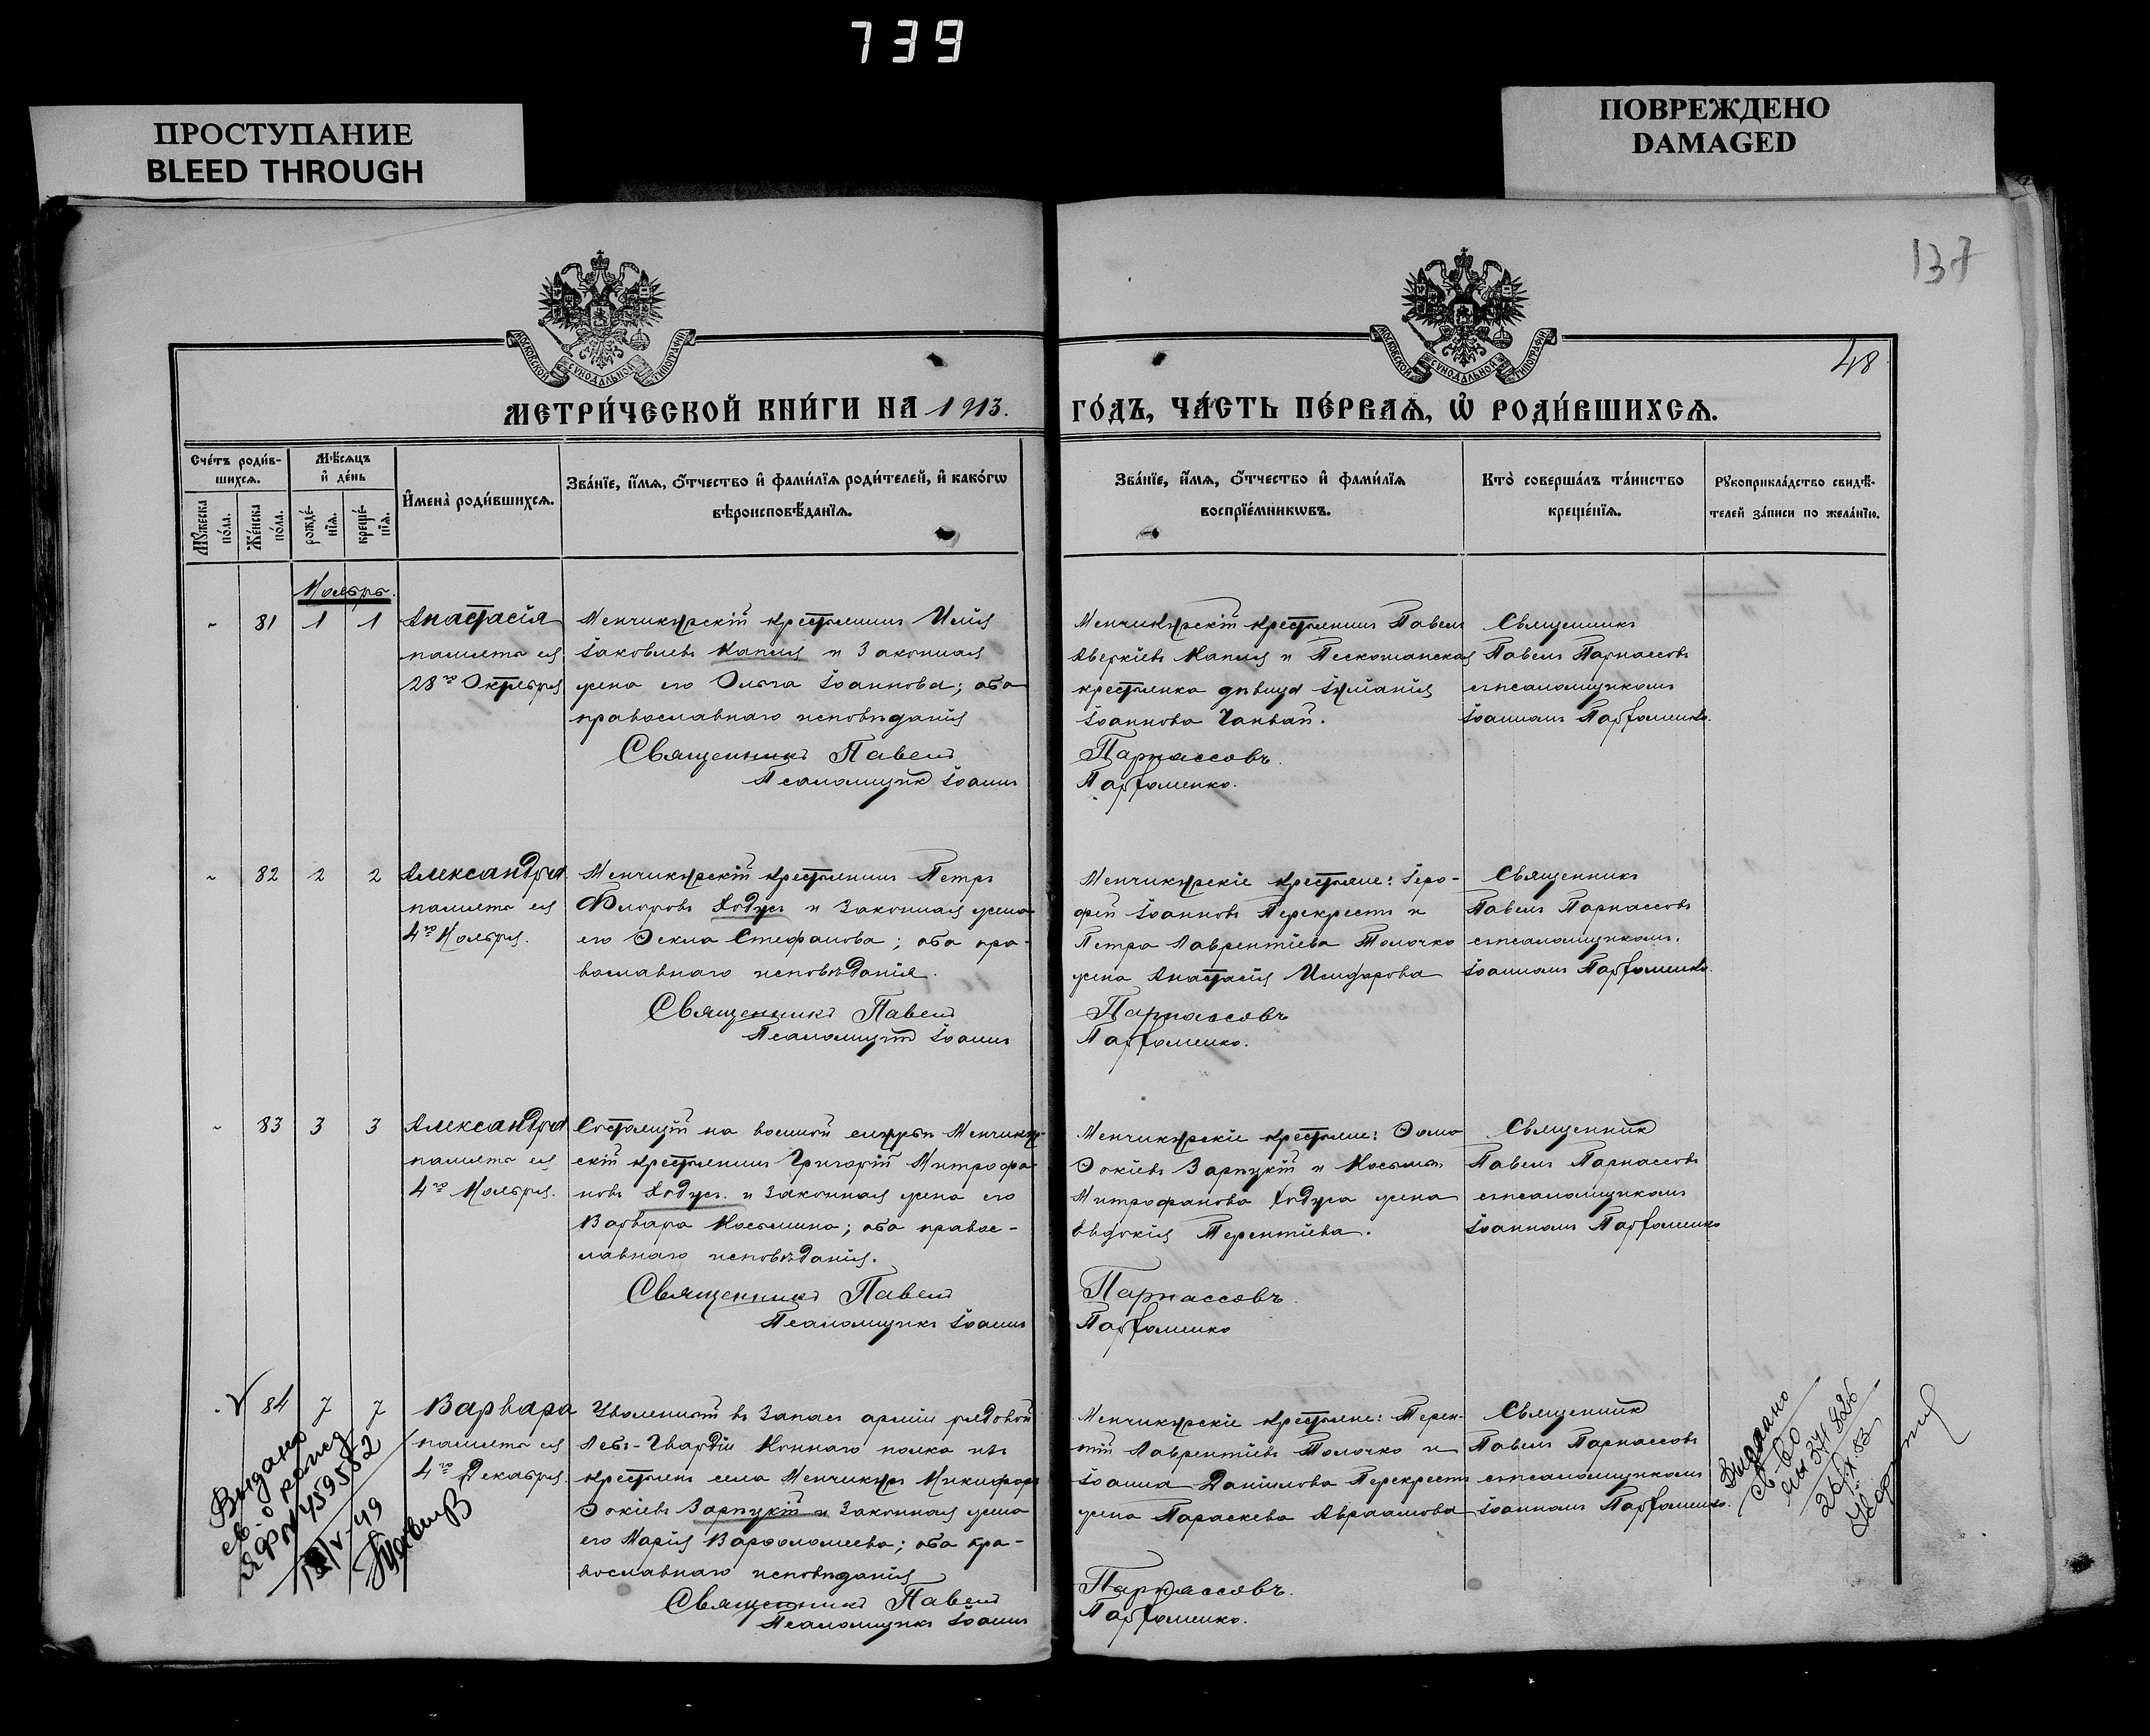 739
ПРОСТУПАНИЕ
BLEED THROUGH
ПОВРЕЖДЕНО
DAMAGED
137
48
МОСКОВСКОЙ СѴНОДАЛЬНОЙ ТИПОГРАФІИ
МОСКОВСКОЙ СѴНОДАЛЬНОЙ ТИПОГРАФІИ
МЕТРИ́ЧЕСКОЙ КНИ́ГИ НА 1913.
ГО́ДЪ, ЧА́СТЬ ПЕ́РВАѦ, Ѽ РОДИ́ВШИХСѦ.
Сче́тъ роди́в-
шихсѧ.
Мѣ́сѧцъ
и҆ де́нь
Мꙋ́жеска
по́ла.
Же́нска
по́ла.
рожде́-
нїѧ.
креще́-
нїѧ.
И҆мена̀ роди́вшихсѧ.
Зва́нїе, и҆́мѧ, ѻ҆́тчество и҆ фами́лїѧ роди́телей, и҆ како́гѡ
вѣроисповѣ́данїѧ.
Зва́нїе, и҆́мѧ, ѻ҆́тчество и҆ фами́лїѧ
воспрїе́мникѡвъ.
Кто̀ соверша́лъ та́инство
креще́нїѧ.
Рꙋкоприкла́дство свидѣ́-
телей за́писи по жела́нїю.
Ноябрь.
81 1 1
Анастасія
память ея
28го Октября
Менчикурскій крестьянинъ Илія
Іаковлевъ Капля и законная
жена его Ольга Іоаннова; оба
православнаго исповѣданія
Священникъ Павелъ
Псаломщикъ Іоаннъ
Менчикурскій крестьянинъ Павелъ
Аверкіевъ Капля и Песчанская
крестьянка дѣвица Іуліанія
Іоаннова
Парнассовъ.
Парфоменко.
Священникъ
Павелъ Парнассовъ
съ псаломщикомъ
Іоанномъ Парфоменко.
82 2 2
Александра
память ея
4го Ноября.
Менчикурскій крестьянинъ Петръ
Флоровъ Ходусъ и законная жена
его Ѳекла Стефанова; оба пра-
вославнаго исповѣданія.
Священникъ Павелъ
Псаломщикъ Іоаннъ
Менчикурскіе крестьяне: Іеро-
фей Іоанновъ Перекрестъ и
Петра Лаврентіева Толочко
жена Анастасія Исидорова
Парнассовъ
Парфоменко.
Священникъ
Павелъ Парнассовъ
съ псаломщикомъ
Іоанномъ Парфоменко.
83 3 3
Александра
память ея
4го Ноября.
Состоящій на военной службѣ Менчикур-
скій крестьянинъ Григорій Митрофа-
новъ Ходусъ и законная жена его
Варвара Косьмина; оба правос-
лавнаго исповѣданія.
Священникъ Павелъ
Псаломщикъ Іоаннъ
Менчикурскіе крестьяне: Ѳома
Ѳокіевъ Зарицкій и Косьмы
Митрофанова Ходуса жена
Евдокія Терентіева.
Парнассовъ.
Парфоменко
Священникъ
Павелъ Парнассовъ
съ псаломщикомъ
Іоанномъ Парфоменко
84 7 7
Варвара
память ея
4го Декабря.
Уволенный въ запасъ арміи рядовой
Лебъ-Гвардіи Коннаго полка изъ
крестьянъ села Менчикуръ Никифоръ
Ѳокіевъ Зарицкій и законная жена
его Марія Варѳоломеева; оба пра-
вославнаго исповѣданія
Священникъ Павелъ
Псаломщикъ Іоаннъ
Менчикурскіе крестьяне: Терен-
тій Лаврентіевъ Толочко и
Іоанна Даніилова Перекрестъ
жена Параскева Авраамова
Парнассовъ.
Парфоменко.
Священникъ
Павелъ Парнассовъ
съ псаломщикомъ
Іоанномъ Парфоменко.
Выдано
св. о рожд
ЯФ № 459582
V-49
Выдано
св-во